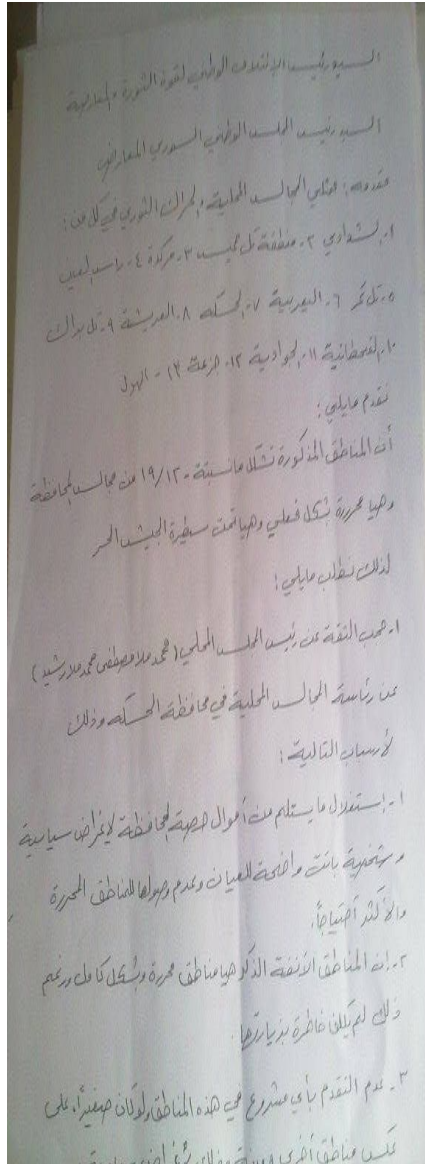 السيد رئيس الائتلاف الوطني لقوى الثورة والمعارضة
السيد رئيس المجلس الوطني السوري المعارض
مقدمه: ممثلي المجالس المحلية والحراك الثوري في كل من:
١- الشدادي ٢- منطقة تل حميس ٣- مركدة ٤- راس العين
٥- تل تمر ٦- اليعربية ٧- الحسكه ٨- العريشة ٩- تل براك
١٠- القحطانية ١١- الجوادية ١٢- جزعة ١٣- الهول
نقدم مايلي:
أن المناطق المذكورة تشكل مانسبتة ١٩/١٢ من مجالس المحافظة
وهيا محررة بشكل فعلي وهيا تحت سيطرة الجيش الحر
لذلك نطلب مايلي:
١- حجب الثقة عن رئيس المجلس المحلي (محمد ملا مصطفى محمد ملا رشيد)
عن رئاسة المجالس المحلية في محافظة الحسكه وذلك
لأسباب التالية:
١- إستغلال ما يستلم من أموال حصة المحافظة لإغراض سياسية
وشخصية باتت واضحة للعيان وعدم وصولها للمناطق المحررة
والأكثر أحتياجاً.
٢- إن المناطق الآنفة الذكر هيا مناطق محررة وبشكل كامل ورغم
ذلك لم يكلف خاطرة بزيارتها.
٣- عدم التقدم بأي مشروع في هذه المناطق ولو كان صغيراً، على
عكس مناطق أخرى